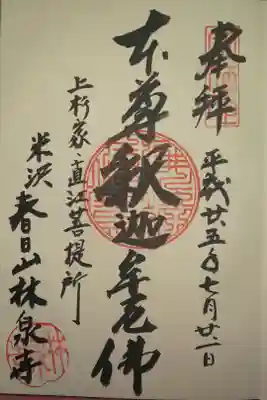 奉拝
平成廿五年七月廿一日
本尊釈迦牟尼佛
上杉家・直江菩提所
米沢春日山林泉寺